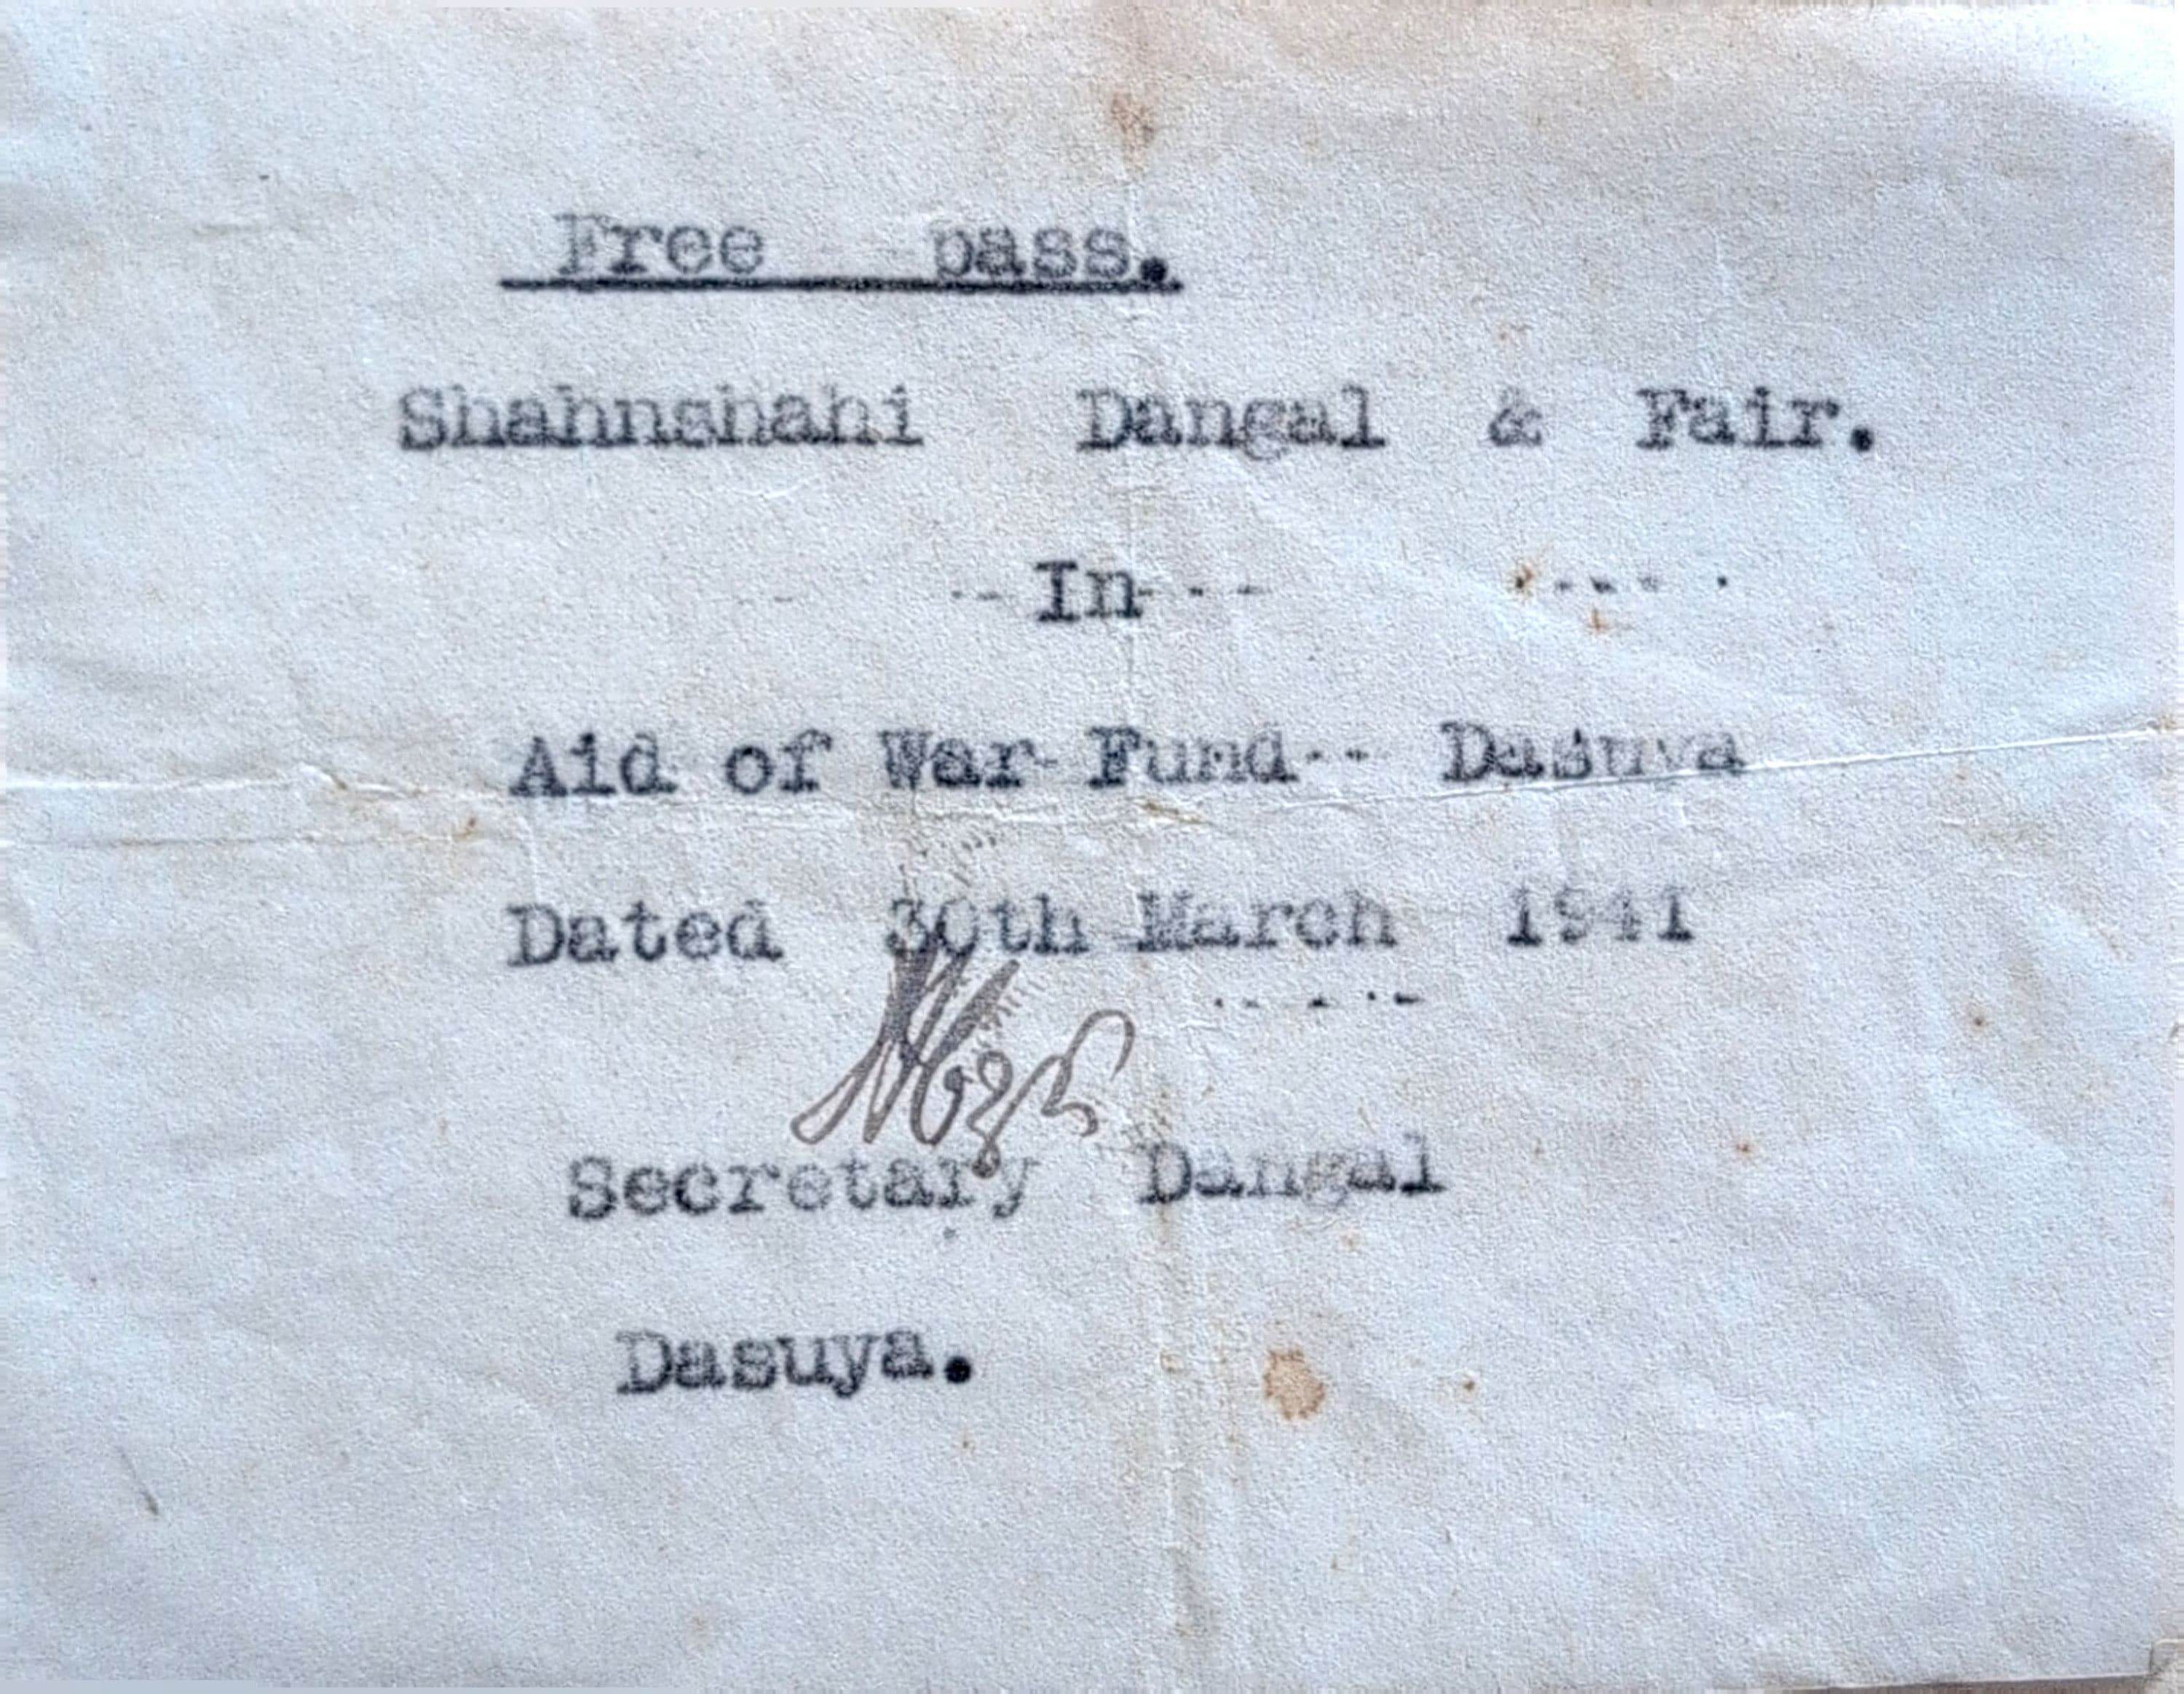 Free pass.
Shahnshahi Dangal & Fair.
--In---
Aid of War Fund-- Dasuya
Dated 30th March 1941
Secretary Dangal
Dasuya.